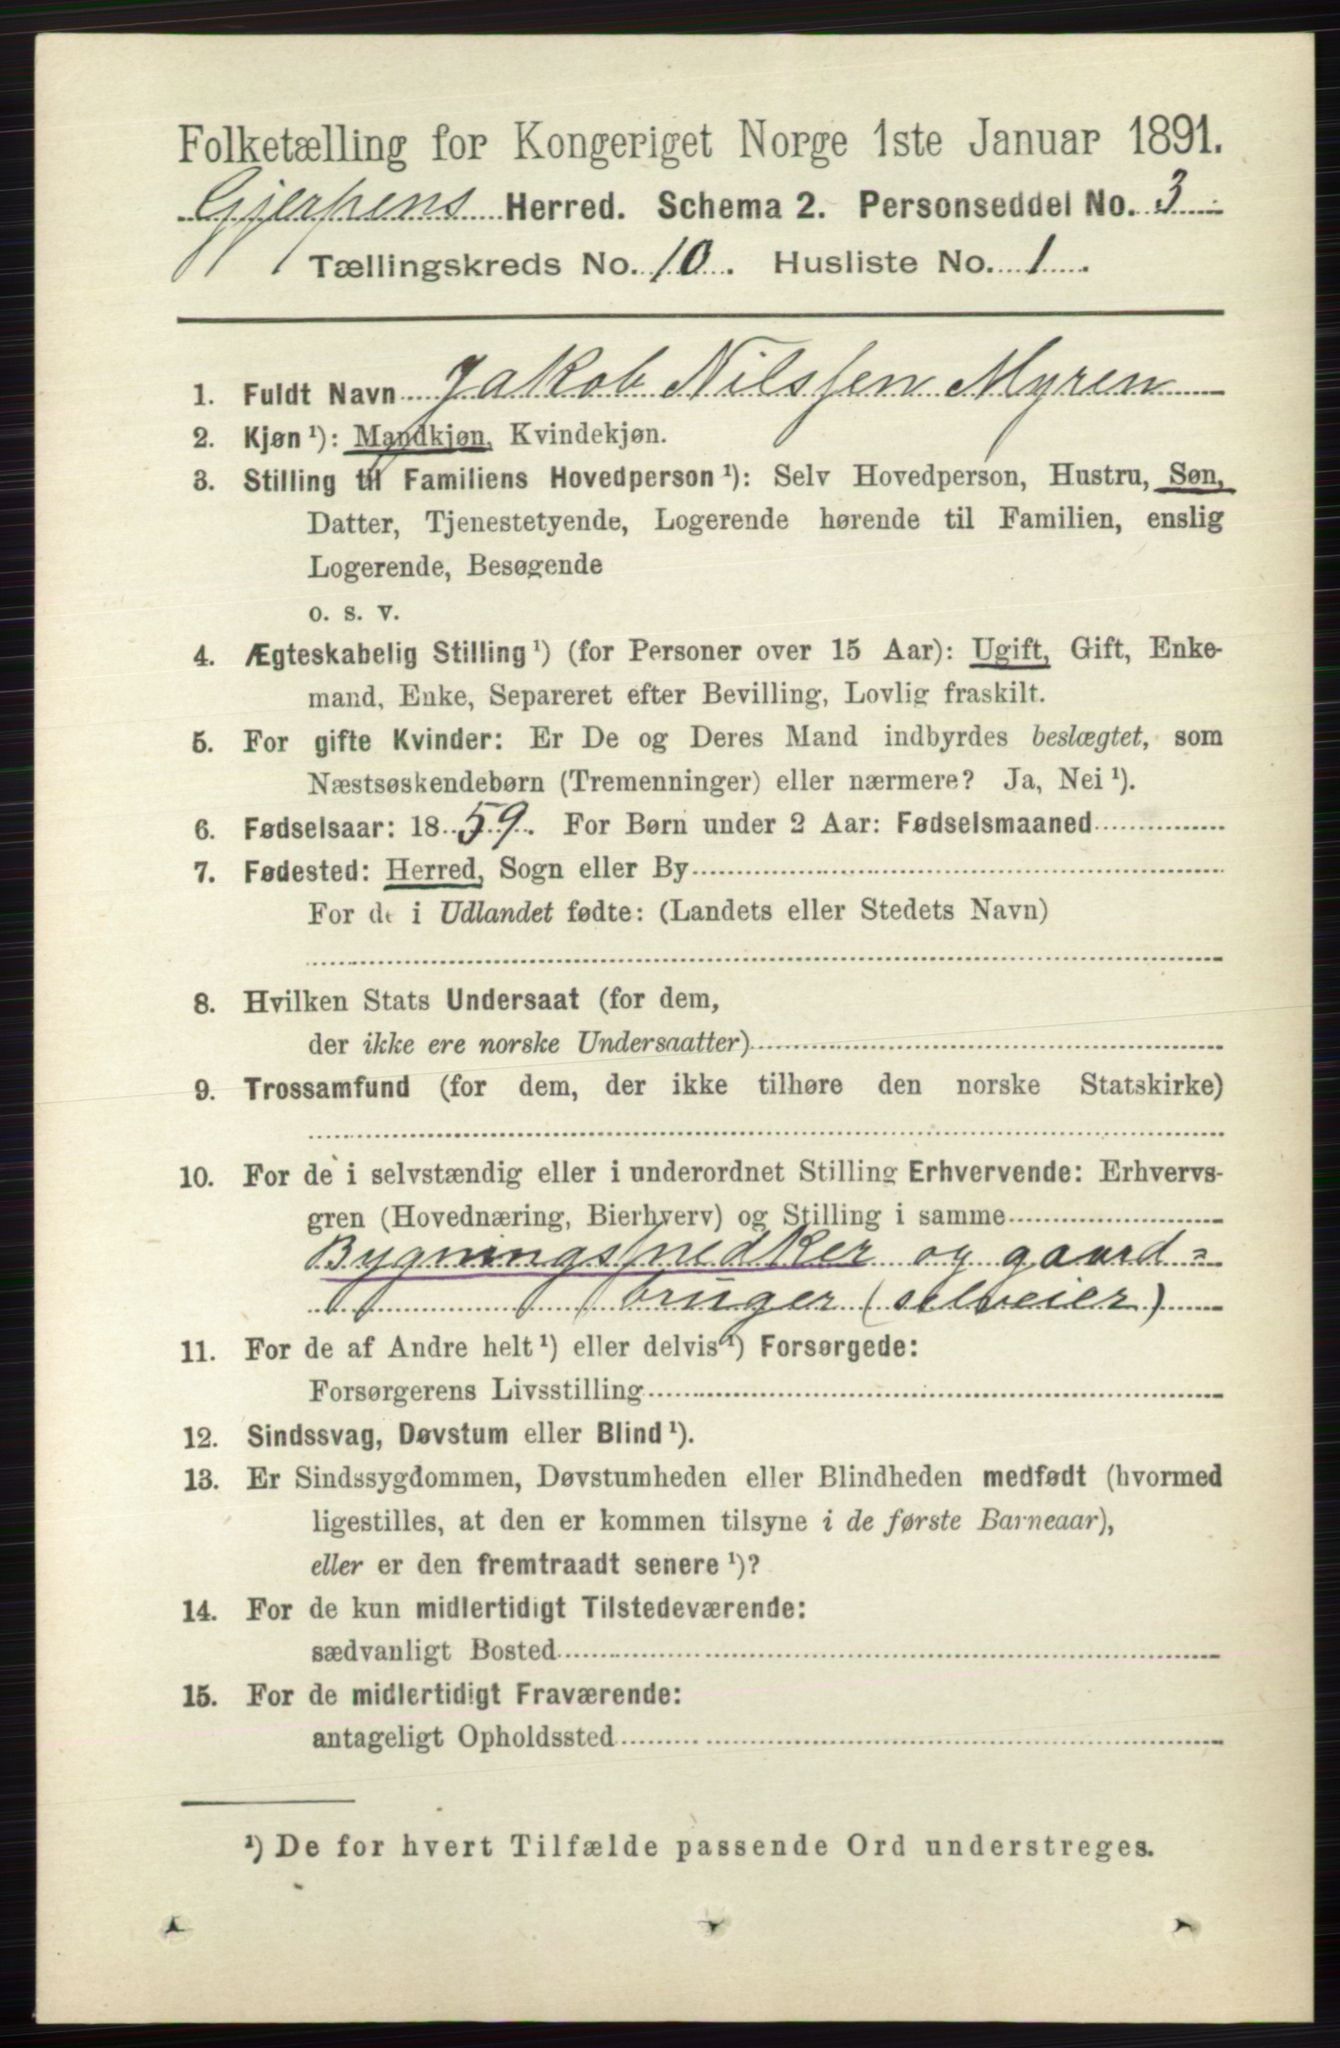 Folketælling for Kongeriget Norge 1ste Januar 1891.
Gjerpens Herred. Schema 2. Personseddel No. 3
Tællingskreds No. 10. Husliste No. 1
1. Fuldt Navn Jakob Nilssen Myren
2. Kjøn ¹): Mandkjøn, Kvindekjøn.
3. Stilling til Familiens Hovedperson ¹): Selv Hovedperson, Hustru, Søn,
Datter, Tjenestetyende, Logerende hørende til Familien, enslig
Logerende, Besøgende
o. s. v.
4. Ægteskabelig Stilling ¹) (for Personer over 15 Aar): Ugift, Gift, Enke-
mand, Enke, Separeret efter Bevilling, Lovlig fraskilt.
5. For gifte Kvinder: Er De og Deres Mand indbyrdes beslægtet, som
Næstsøskendebørn (Tremenninger) eller nærmere? Ja, Nei ¹).
6. Fødselsaar: 1859. For Børn under 2 Aar: Fødselsmaaned
7. Fødested: Herred, Sogn eller By
For de i Udlandet fødte: (Landets eller Stedets Navn)
8. Hvilken Stats Undersaat (for dem,
der ikke ere norske Undersaatter)
9. Trossamfund (for dem, der ikke tilhøre den norske Statskirke)
10. For de i selvstændig eller i underordnet Stilling Erhvervende: Erhvervs-
gren (Hovednæring, Bierhverv) og Stilling i samme
Bygningssnedker og gaard=
bruger (selveier)
11. For de af Andre helt ¹) eller delvis ¹) Forsørgede:
Forsørgerens Livsstilling
12. Sindssvag, Døvstum eller Blind ¹).
13. Er Sindssygdommen, Døvstumheden eller Blindheden medfødt (hvormed
ligestilles, at den er kommen tilsyne i de første Barneaar),
eller er den fremtraadt senere ¹)?
14. For de kun midlertidigt Tilstedeværende:
sædvanligt Bosted
15. For de midlertidigt Fraværende:
antageligt Opholdssted
¹) De for hvert Tilfælde passende Ord understreges.